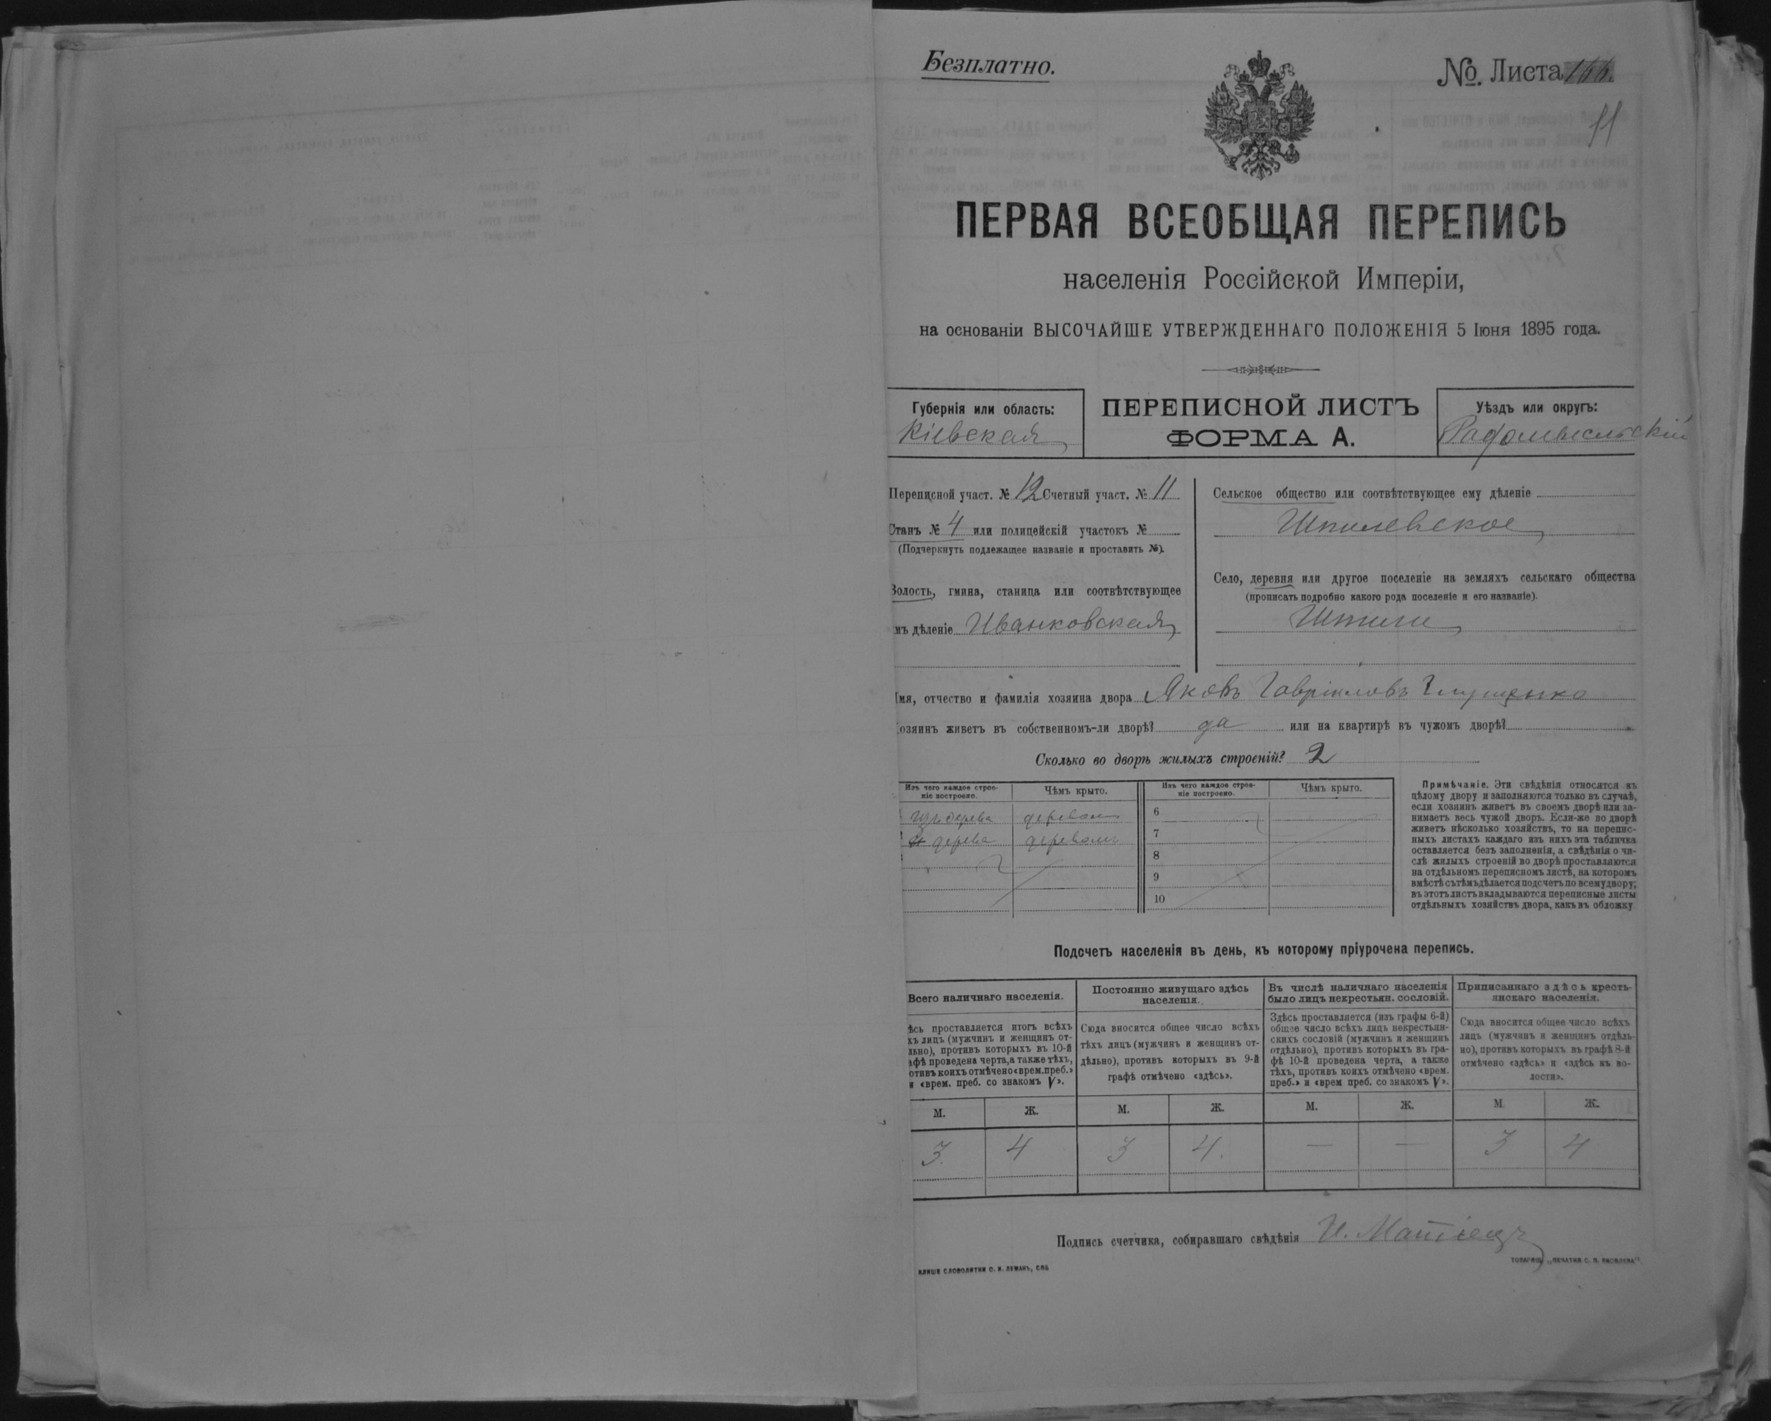 Безплатно.
№. Листа
11
ПЕРВАЯ ВСЕОБЩАЯ ПЕРЕПИСЬ
населенія Россійской Имперіи,
на основаніи ВЫСОЧАЙШЕ УТВЕРЖДЕННАГО ПОЛОЖЕНІЯ 5 Іюня 1895 года.
Губернія или область:
Кіевская
ПЕРЕПИСНОЙ ЛИСТЪ
ФОРМА А.
Уѣздъ или округъ:
Радомысльскій
Переписной участ. № 12 Счетный участ. № 11
Станъ № 4 или полицейскій участокъ №
(Подчеркнуть подлежащее названіе и проставить №).
Волость, гмина, станица или соотвѣтствующее
мъ дѣленіе Иванковская
Сельское общество или соотвѣтствующее ему дѣленіе
Шпилевское
Село, деревня или другое поселеніе на земляхъ сельскаго общества
(прописать подробно какого рода поселеніе и его названіе).
Шпили
Имя, отчество и фамилія хозяина двора Яковъ Гавріиловъ Глущенко
хозяинъ живетъ въ собственномъ-ли дворѣ? да или на квартирѣ въ чужомъ дворѣ?
Сколько во дворѣ жилыхъ строеній? 2
Изъ чего каждое строе-
ніе построено.
Чѣмъ крыто.
Изъ чего каждое строе-
ніе построено.
Чѣмъ крыто.
изъ дерева деревом
дерева деревом
6
7
8
9
10
Примѣчаніе. Эти свѣдѣнія относятся къ
цѣлому двору и заполняются только въ случаѣ,
если хозяинъ живетъ въ своемъ дворѣ или за-
нимаетъ весь чужой дворъ. Если-же во дворѣ
живетъ нѣсколько хозяйствъ, то на перепис-
ныхъ листахъ каждаго изъ нихъ эта табличка
оставляется безъ заполненія, а свѣдѣнія о чи-
слѣ жилыхъ строеній во дворѣ проставляются
на отдѣльномъ переписномъ листѣ, на которомъ
вмѣстѣ съ тѣмъ дѣлается подсчетъ по всему двору;
въ этотъ листъ вкладываются переписные листы
отдѣльныхъ хозяйствъ двора, какъ въ обложку.
Подсчетъ населенія въ день, къ которому пріурочена перепись.
Всего наличнаго населенія.
ѣсь проставляется итогъ всѣхъ
хъ лицъ (мужчинъ и женщинъ от-
льно), противъ которыхъ въ 10-й
афѣ проведена черта, а также тѣхъ,
отивъ коихъ отмѣчено «врем. преб.»
и «врем. преб. со знакомъ V».
М. Ж.
3 4
Постоянно живущаго здѣсь
населенія.
Сюда вносится общее число всѣхъ
тѣхъ лицъ (мужчинъ и женщинъ от-
дѣльно), противъ которыхъ въ 9-й
графѣ отмѣчено «здѣсь».
М. Ж.
3 4.
Въ числѣ наличнаго населенія
было лицъ некрестьян. сословій.
Здѣсь проставляется (изъ графы 6-й)
общее число всѣхъ лицъ некрестьян-
скихъ сословій (мужчинъ и женщинъ
отдѣльно), противъ которыхъ въ гра-
фѣ 10-й проведена черта, а также
тѣхъ, противъ коихъ отмѣчено «врем.
преб.» и «врем преб. со знакомъ V».
М. Ж.
— —
Приписаннаго здѣсь кресть-
янскаго населенія.
Сюда вносится общее число всѣхъ
лицъ (мужчинъ и женщинъ отдѣль-
но), противъ которыхъ въ графѣ 8-й
отмѣчено «здѣсь» и «здѣсь къ во-
лости».
М. Ж.
3 4
Подпись счетчика, собиравшаго свѣдѣнія И. Матіецъ
КЛИШЕ СЛОВОЛИТНИ О. И. ЛЕМАНЪ, СПБ
ТОВАРИЩ. „ПЕЧАТНЯ С. П. ЯКОВЛЕВА“